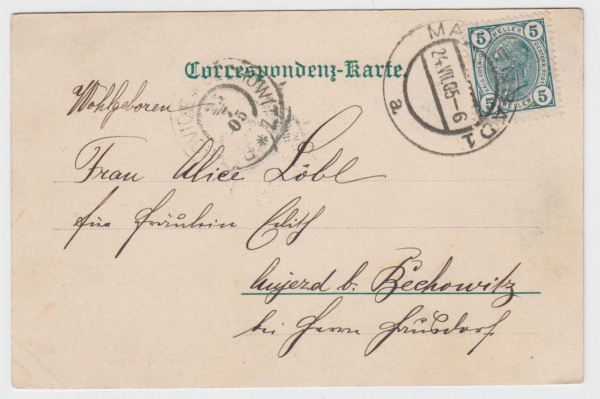 Correspondenz-Karte.
5 HELLER 5
5 HELLER 5
24.VII.05-6
a
1
05
Wohlgeboren
Frau Alice Löbl
für Fräulein Edith
Aujezd b. Bechowitz
bei Herrn Hausdorf.